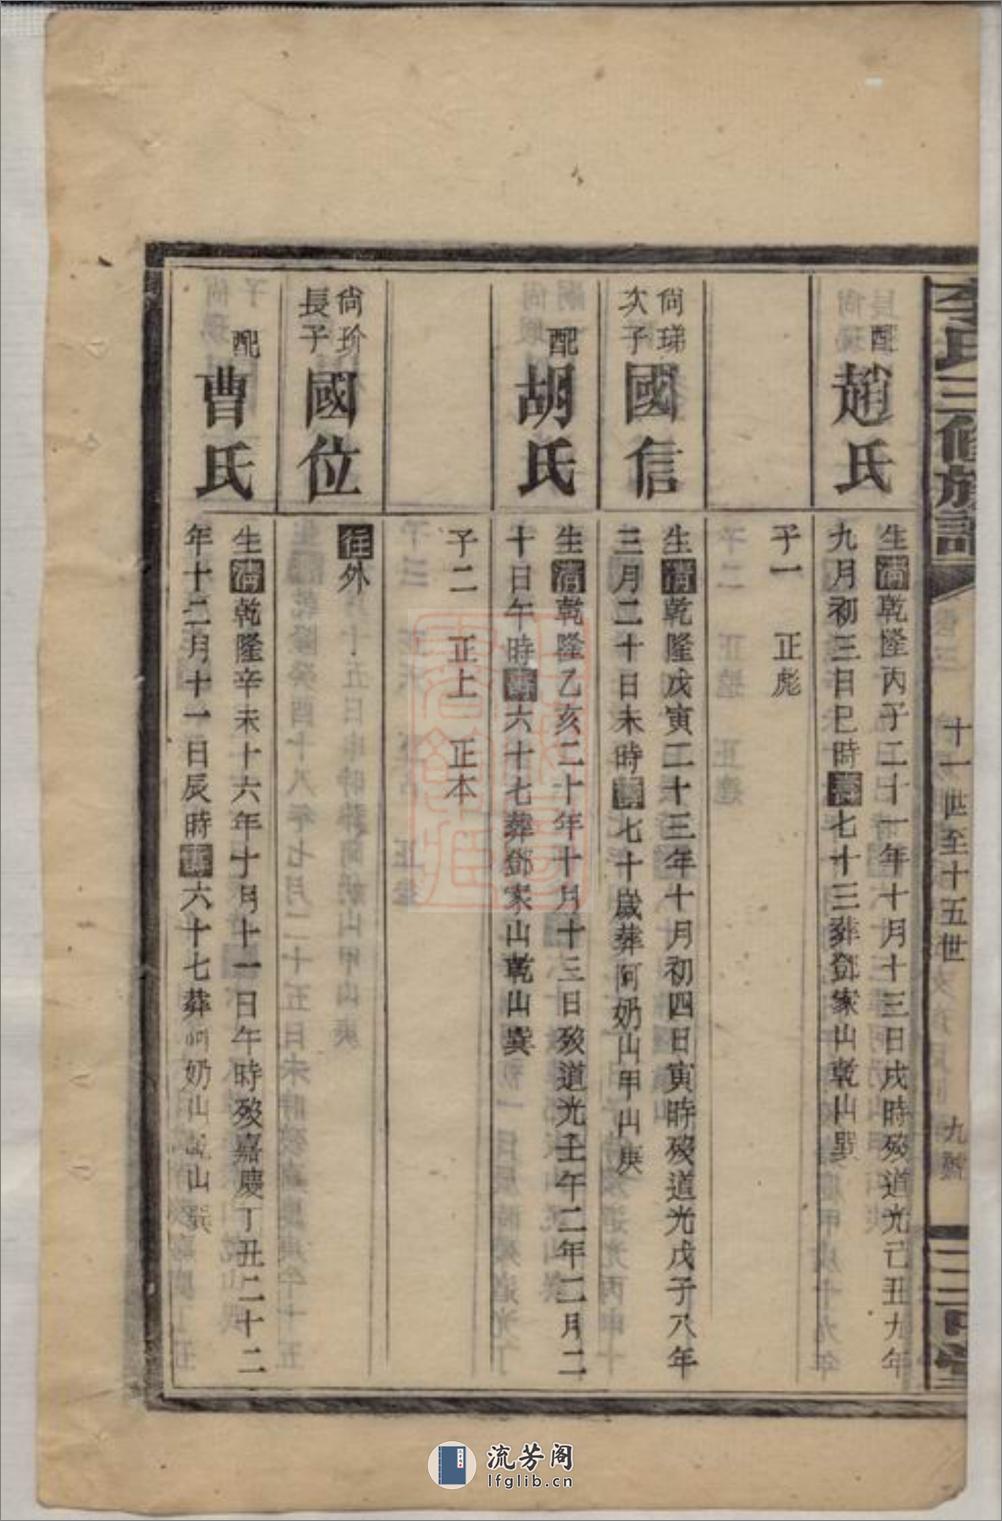 李氏三修族譜
十一世至十五世
九號
三
配
趙氏
生清乾隆丙子二十一年十月十三日戌時歿道光己丑九年
九月初三日巳時壽七十三葬鄧家山乾山巽
子一 正彪
尚珶
次子
國信
生清乾隆戊寅二十三年十月初四日寅時歿道光戊子八年
三月二十日未時壽七十歲葬阿奶山甲山庚
配
胡氏
生清乾隆乙亥二十年十月十三日歿道光壬午二年二月二
十日午時壽六十七葬鄧家山乾山巽
子二 正上 正本
尚珍
長子
國位
往外
配
曹氏
生清乾隆辛未十六年十月十一日午時歿嘉慶丁丑二十二
年十二月十一日辰時壽六十七葬阿奶山乾山巽
流芳阁
lfglib.cn